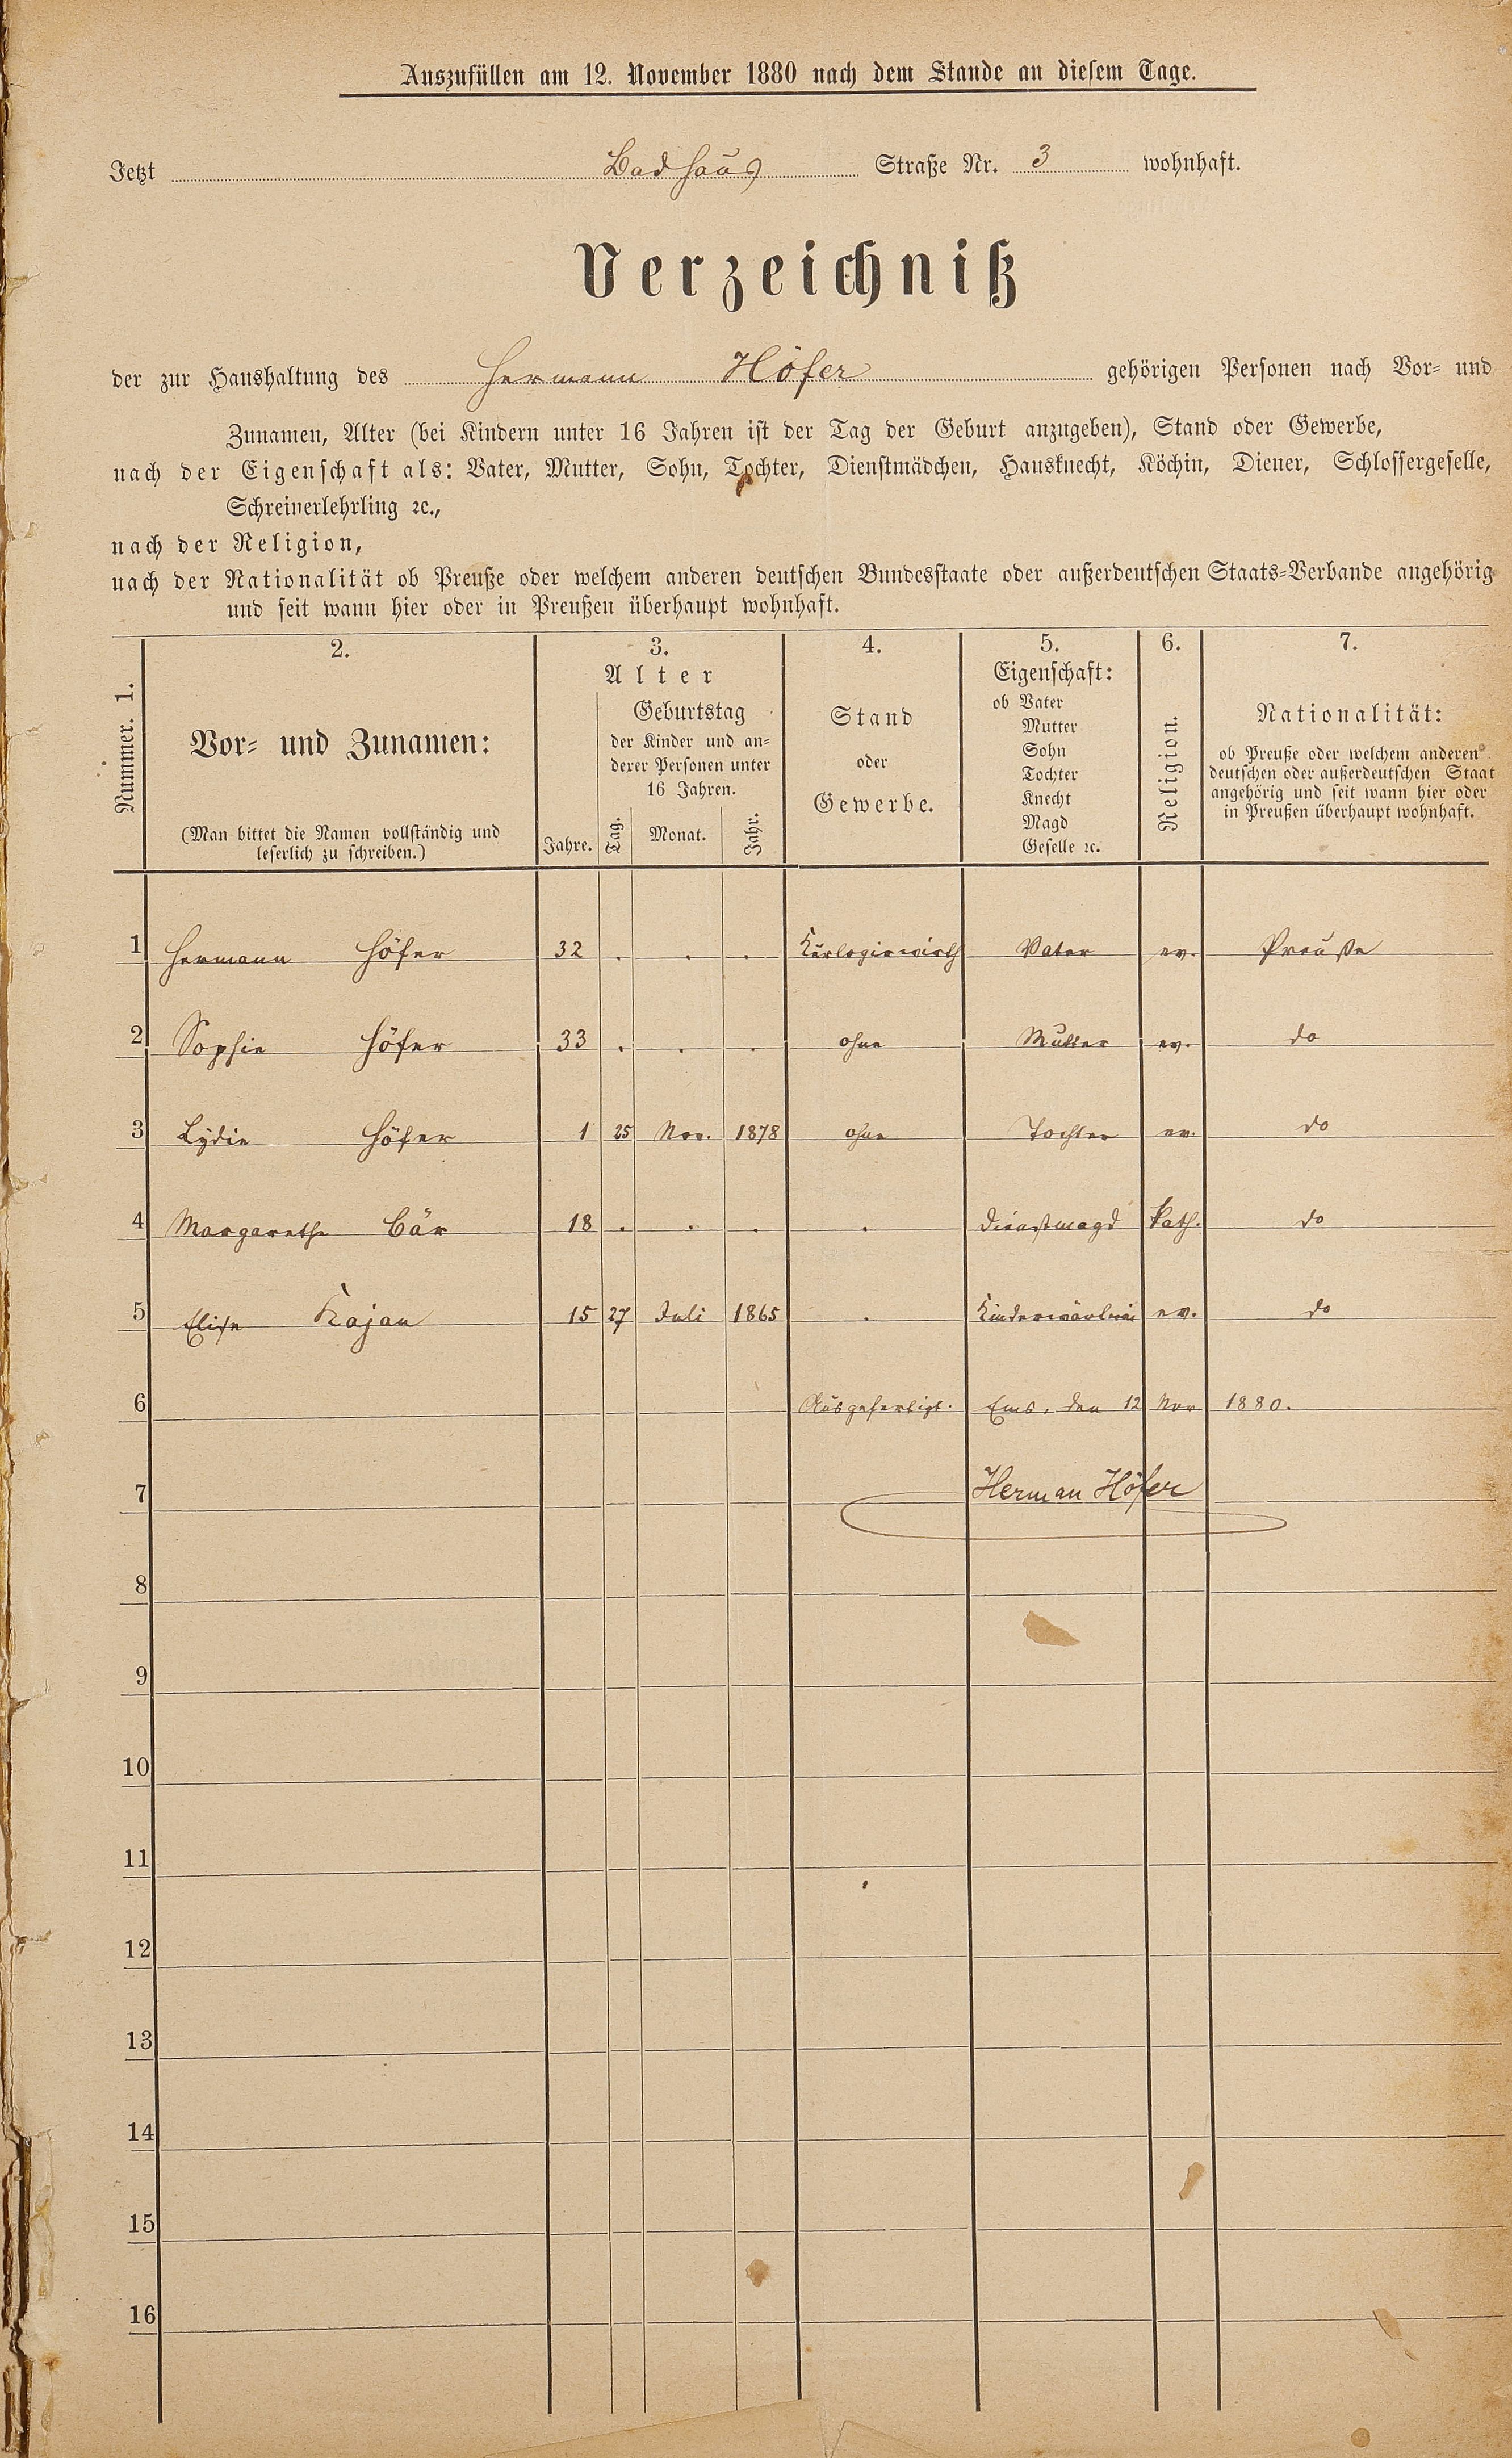 Auszufüllen am 12. November 1880 nach dem Stande an diesem Tage.
Jetzt Badhaus Straße Nr. 3 wohnhaft.
Verzeichniß
der zur Haushaltung des Hermann Höfer gehörigen Personen nach Vor- und
Zunamen, Alter (bei Kindern unter 16 Jahren ist der Tag der Geburt anzugeben), Stand oder Gewerbe,
nach der Eigenschaft als: Vater, Mutter, Sohn, Tochter, Dienstmädchen, Hausknecht, Köchin, Diener, Schlossergeselle,
Schreinerlehrling ꝛc.,
nach der Religion,
nach der Nationalität ob Preuße oder welchem anderen deutschen Bundesstaate oder außerdeutschen Staats-Verbande angehörig
und seit wann hier oder in Preußen überhaupt wohnhaft.
Nummer. 1.
2.
Vor- und Zunamen:
(Man bittet die Namen vollständig und
leserlich zu schreiben.)
3.
Alter
Jahre.
Geburtstag
der Kinder und an-
derer Personen unter
16 Jahren.
Tag. Monat. Jahr.
4.
Stand
oder
Gewerbe.
5.
Eigenschaft:
ob Vater
Mutter
Sohn
Tochter
Knecht
Magd
Geselle ꝛc.
6.
Religion.
7.
Nationalität:
ob Preuße oder welchem anderen
deutschen oder außerdeutschen Staat
angehörig und seit wann hier oder
in Preußen überhaupt wohnhaft.
1 Hermann Höfer 32 . . . Kurlogirwirth Vater ev. Preuße
2 Sophie Höfer 33 . . . ohne Mutter ev. do
3 Lydie Höfer 1 25 Nov. 1878 ohne Tochter ev. do
4 Margarethe Bär 18 . . . . Dienstmagd kath. do
5 Elise Kajan 15 27 Juli 1865 . ev. do
6 Ausgefertigt. Ems, den 12 Nov 1880.
7 Herman Höfer
8
9
10
11
12
13
14
15
16